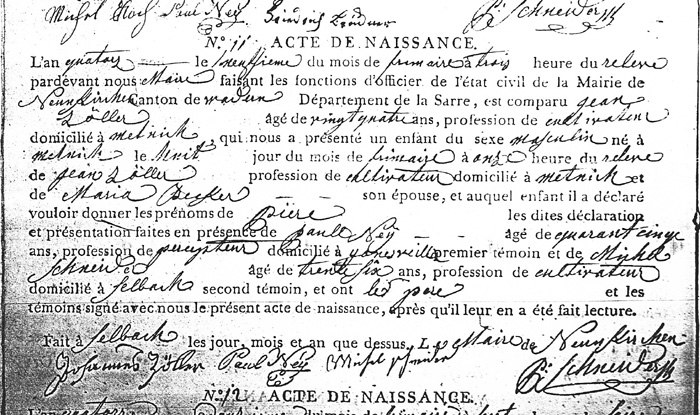 Michel Koch Paul Neÿ Heinrich B: Schneider
N.º 11 ACTE DE NAISSANCE.
L'an quatorz le neuffieme du mois de frimaire à trois heure du releve
pardevant nous Maire faisant les fonctions d'officier de l'état civil de la Mairie de
Neunkirchen Canton de wadern Département de la Sarre, est comparu jean
Zöller âgé de vingt quatre ans, profession de cultivateur
domicilié à metnich, qui nous a présenté un enfant du sexe masculin né à
metnich le huit jour du mois de frimaire à onze heure du releve
de jean Zöller profession de cultivateur domicilié à metnich et
de Maria Becker son épouse, et auquel enfant il a déclaré
vouloir donner les prénoms de piere les dites déclaration
et présentation faites en présence de paull Neÿ âgé de quarant cinqe
ans, profession de percepteur domicilié à premier témoin et de Michl
Schneider âgé de trente six ans, profession de cultivateur
domicilié à Selbach second témoin, et ont les pere et les
témoins signé avec nous le présent acte de naissance, après qu'il leur en a été fait lecture.
Fait à Selbach les jour, mois et an que dessus. Le Maire de Neunkirchen
Johannes Zöller Paul Neÿ Michel Schneider B: Schneider
N.º 12 ACTE DE NAISSANCE.
L'an quatorz du mois de frimaire à